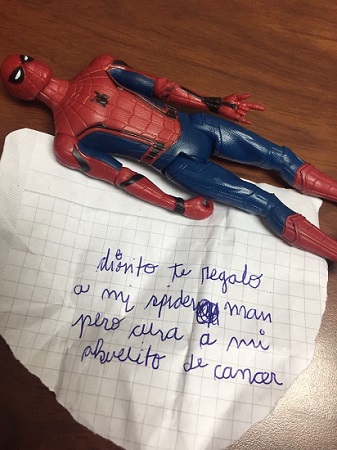 diosito te regalo
a mi spider man
pero cura a mi
abuelito de cancer